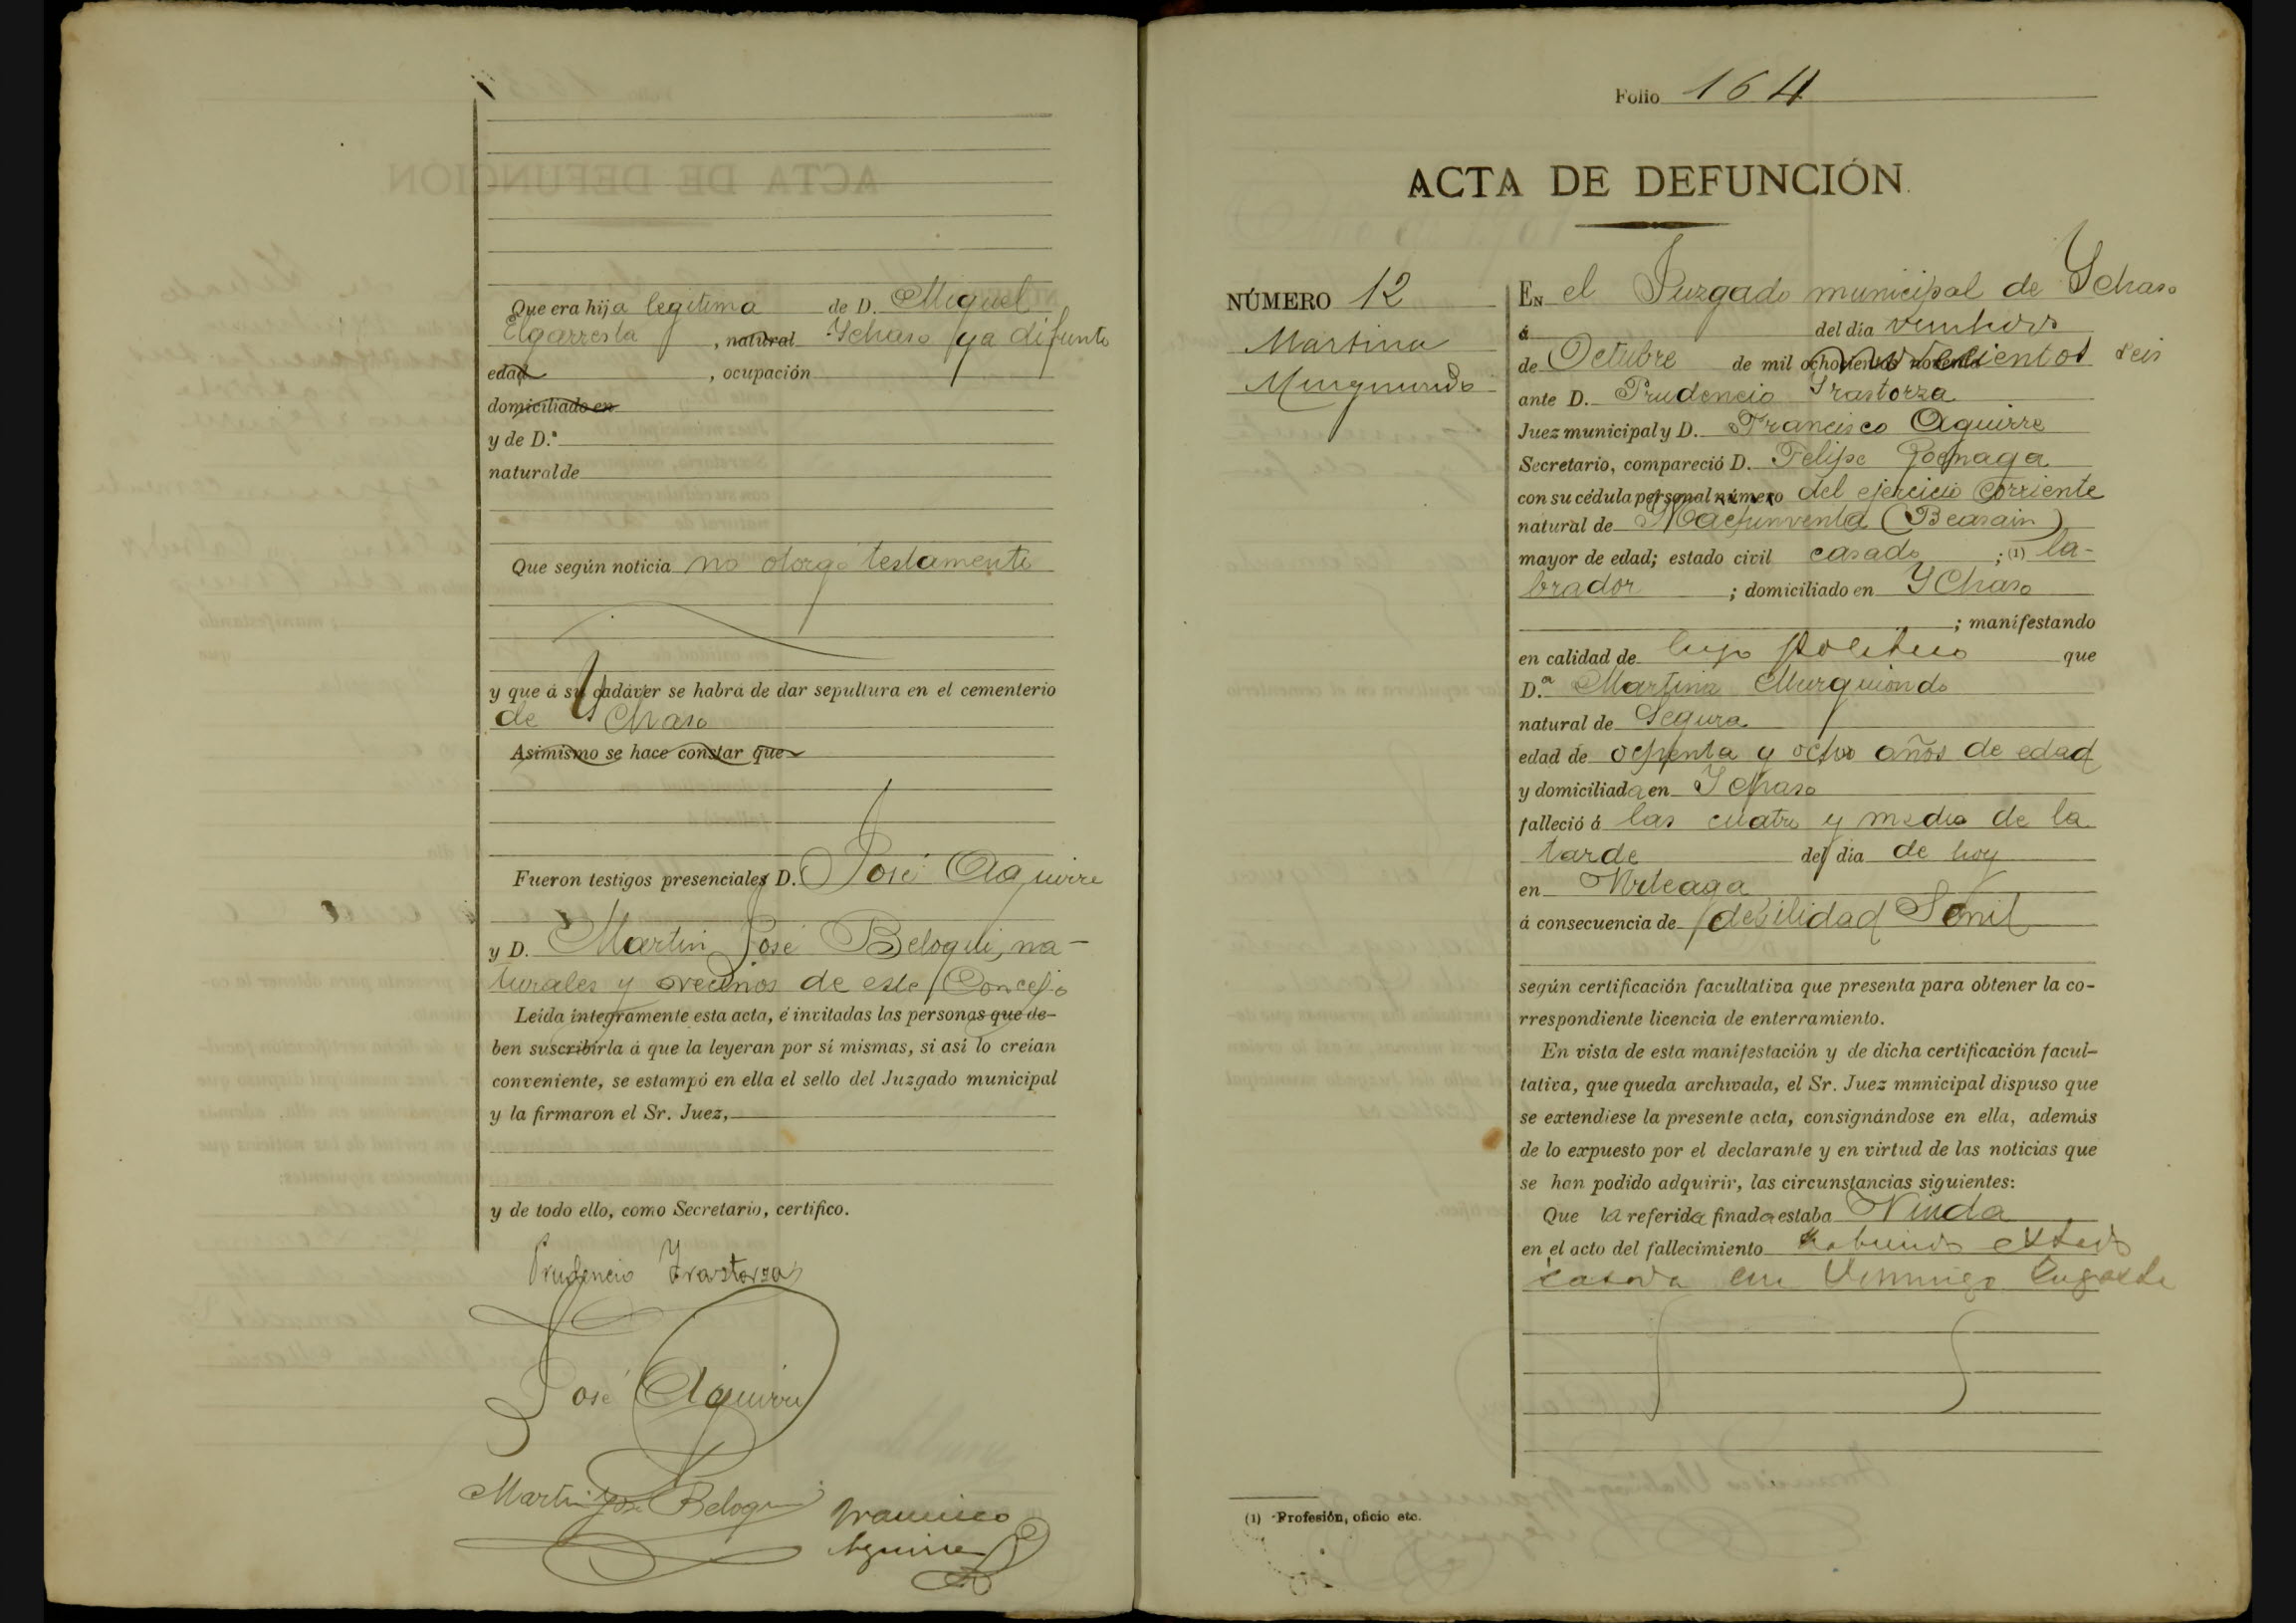 Que era hija legitima de D. Miguel
Elgarresta, natural Ychaso ya difunto
edad , ocupación
domiciliado en
y de D.ª
natural de
Que según noticia no otorgó testamento
y que á su cadáver se habrá de dar sepultura en el cementerio
de Ychaso
Asimismo se hace constar que
Fueron testigos presenciales D. José Aguirre
y D. Martin José Beloqui, na-
turales y vecinos de este Concejo
Leída íntegramente esta acta, é invitadas las personas que de-
ben suscribirla á que la leyeran por sí mismas, si así lo creían
conveniente, se estampó en ella el sello del Juzgado municipal
y la firmaron el Sr. Juez,
y de todo ello, como Secretario, certifico.
Prudencio Yrastorza
José Aguirre
Martin José Beloqui
Francisco
Aguirre
Folio 164
ACTA DE DEFUNCIÓN.
NÚMERO 12
Martina
Murguiondo
EN el Juzgado municipal de Ychaso
á del día
de Octubre de mil ochocientos noventa seis
ante D. Prudencio Yrastorza
Juez municipal y D. Francisco Aguirre
Secretario, compareció D. Felipe Goenaga
con su cédula personal número del ejercicio corriente
natural de (Beasain)
mayor de edad; estado civil casado ; (1) la-
brador ; domiciliado en Ychaso
; manifestando
en calidad de hijo politico que
D.ª Martina Murguiondo
natural de Segura
edad de ochenta y ocho años de edad
y domiciliada en Ychaso
falleció á las cuatro y media de la
tarde del día de hoy
en Arteaga
á consecuencia de debilidad Senil
según certificación facultativa que presenta para obtener la co-
rrespondiente licencia de enterramiento.
En vista de esta manifestación y de dicha certificación facul-
tativa, que queda archivada, el Sr. Juez mnnicipal dispuso que
se extendiese la presente acta, consignándose en ella, además
de lo expuesto por el declarante y en virtud de las noticias que
se han podido adquirir, las circunstancias siguientes:
Que la referida finada estaba Viuda
en el acto del fallecimiento
casada con Domingo
(1) Profesión, oficio etc.